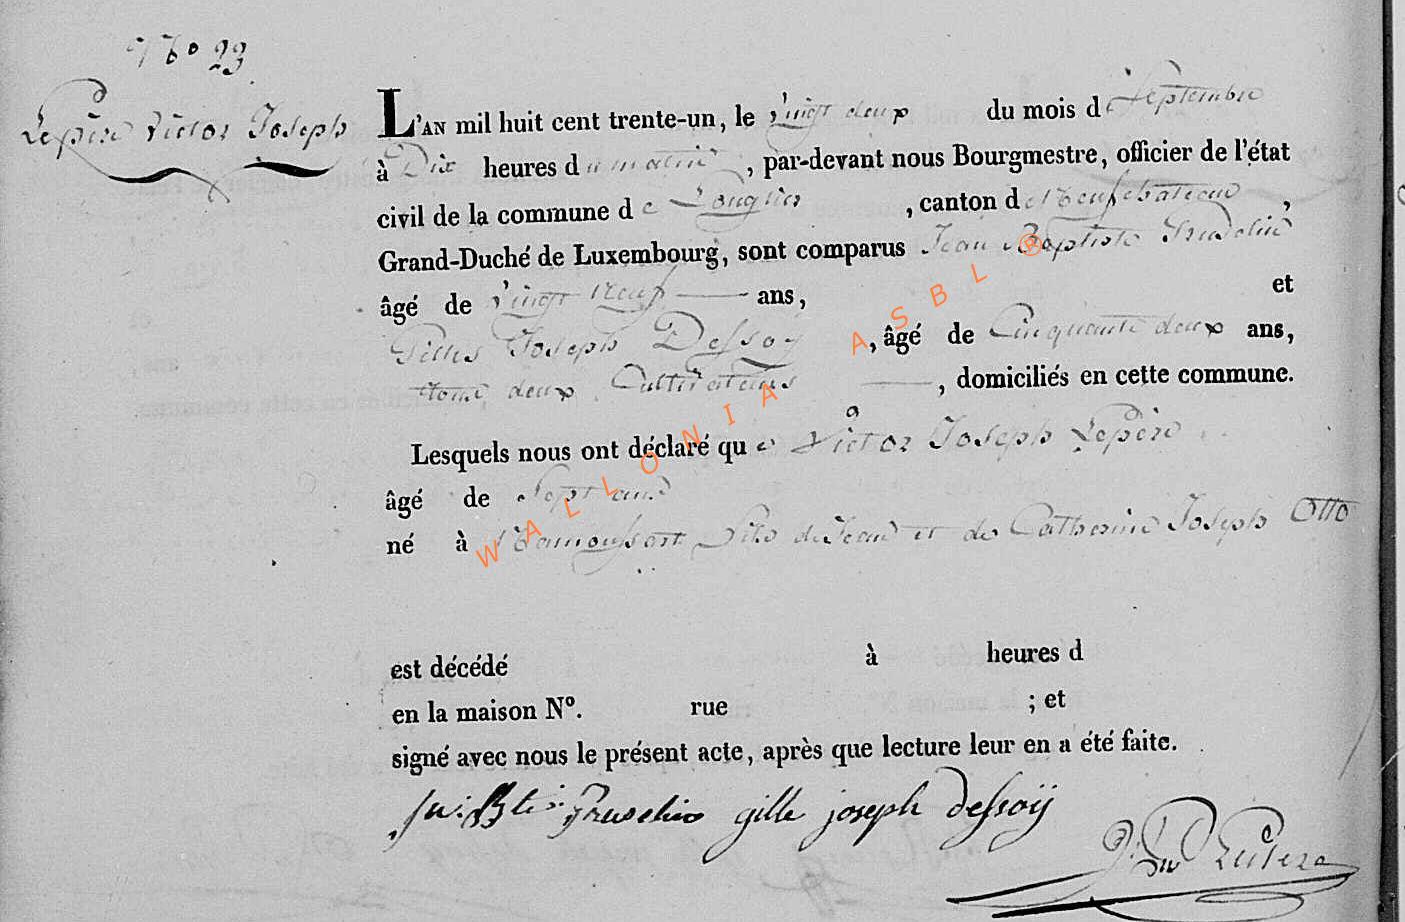 N° 23
Lepère Victor Joseph
L'AN mil huit cent trente-un, le vingt deux du mois de Septembre
à Dix heures du matin, par-devant nous Bourgmestre, officier de l'état
civil de la commune de Longlier, canton de Neufchateau,
Grand-Duché de Luxembourg, sont comparus Jean Baptiste
âgé de vingt neuf ans, et
Gilles Joseph Dessoy, âgé de Cinquante deux ans,
tous deux Cultivateurs, domiciliés en cette commune.
Lesquels nous ont déclaré que Victor Joseph Lepère
âgé de Sept ans
né à Hamousart fils de Jean et de Catherine Joseph Otto
est décédé à heures d
en la maison N°. rue ; et
signé avec nous le présent acte, après que lecture leur en a été faite.
gille joseph dessoÿ
WALLONIA ASBL ®